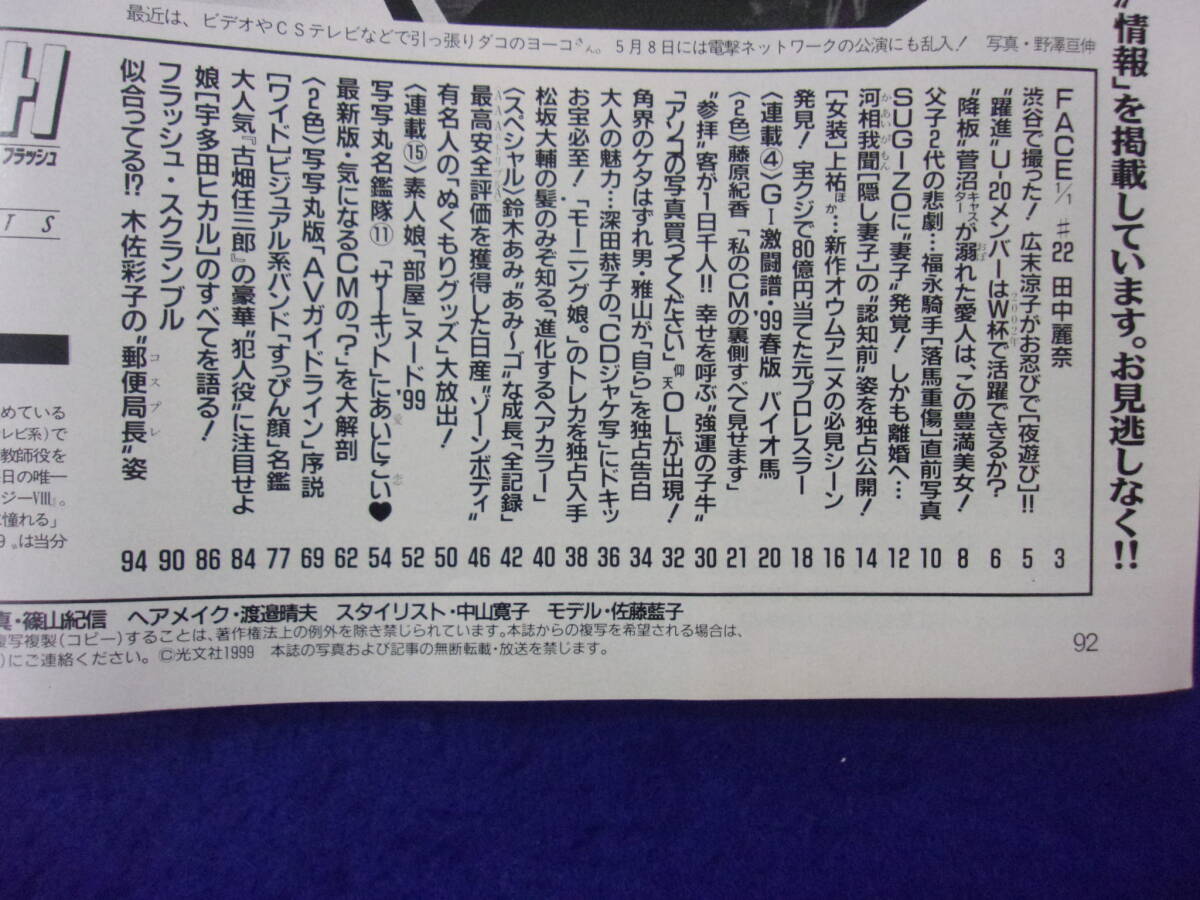 最近は、ビデオやCSテレビなどで引っ張りダコのヨーコさん。5月8日には電撃ネットワークの公演にも乱入! 写真・野澤亘伸
"情報"を掲載しています。お見逃しなく!!
FACE1/1 #22 田中麗奈 3
渋谷で撮った! 広末涼子がお忍びで[夜遊び]!! 5
"躍進"U-20メンバーは2002年W杯で活躍できるか? 6
"降板"菅沼キャスターが溺れた愛人は、この豊満美女! 8
父子2代の悲劇…福永騎手[落馬重傷]直前写真 10
SUGIZOに"妻子"発覚! しかも離婚へ… 12
河相我聞[隠し妻子]の"認知前"姿を独占公開! 14
[女装]上祐ほか…新作オウムアニメの必見シーン 16
発見! 宝クジで80億円当てた元プロレスラー 18
〈連載④〉GI激闘譜・'99春版 バイオ馬 20
〈2色〉藤原紀香「私のCMの裏側すべて見せます」 21
"参拝"客が1日千人!! 幸せを呼ぶ"強運の子牛" 30
「アソコの写真買ってください」仰天OLが出現! 32
角界のケタはずれ男・雅山が「自ら」を独占告白 34
大人の魅力…深田恭子の「CDジャケ写」にドキッ 36
お宝必至!「モーニング娘。」のトレカを独占入手 38
松坂大輔の髪のみぞ知る「進化するヘアカラー」 40
〈スペシャル〉鈴木あみ"あみ〜ゴ"な成長「全記録」 42
最高安全評価AAAを獲得した日産"ゾーンボディ" 46
有名人の「ぬくもりグッズ」大放出! 50
〈連載⑮〉素人娘「部屋」ヌード'99 52
写写丸名鑑隊⑪「サーキット」にあいにこい♥ 54
最新版・気になるCMの「?」を大解剖 62
〈2色〉写写丸版「AVガイドライン」序説 69
[ワイド]ビジュアル系バンド「すっぴん顔」名鑑 77
大人気『古畑任三郎』の豪華"犯人役"に注目せよ 84
娘[宇多田ヒカル]のすべてを語る! 86
フラッシュ・スクランブル 90
似合ってる!? 木佐彩子の"郵便局長"コスプレ姿 94
フラッシュ
TS
めている
レビ系)で
教師役を
日の唯一
ジーVIII』。
に憧れる」
は当分
真・篠山紀信 ヘアメイク・渡邉晴夫 スタイリスト・中山寛子 モデル・佐藤藍子
複写複製(コピー)することは、著作権法上の例外を除き禁じられています。本誌からの複写を希望される場合は、
)にご連絡ください。©光文社1999 本誌の写真および記事の無断転載・放送を禁じます。
92